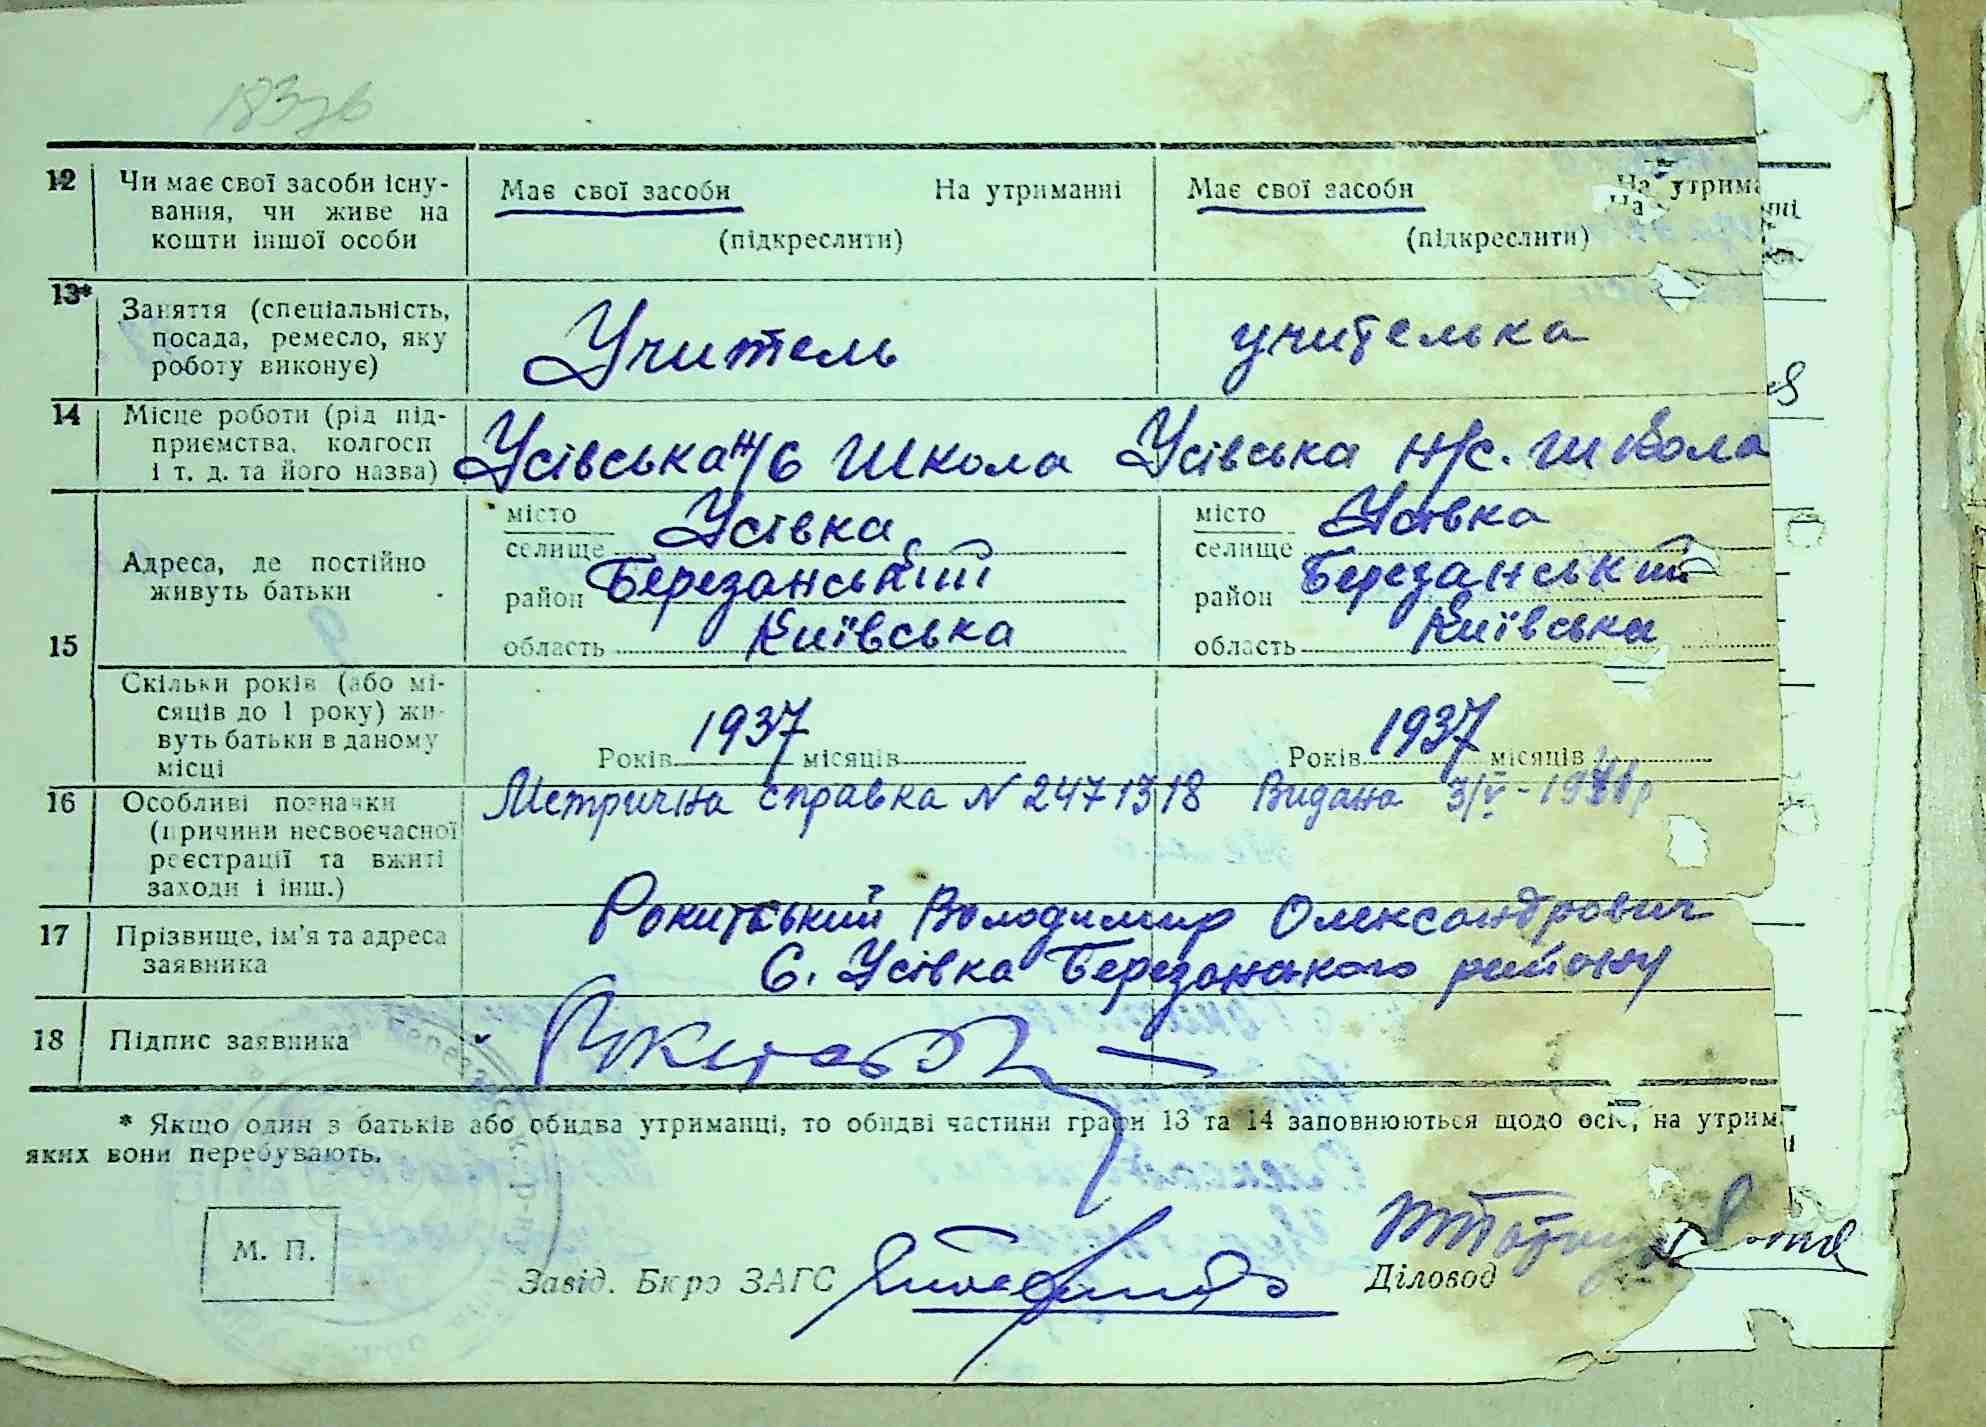 12 Чи має свої засоби існу- Має свої засоби На утриманні Має свої засоби На утрима
вання, чи живе на
кошти іншої особи (підкреслити) (підкреслити)
13* Заняття (спеціальність, Учитель учителька
посада, ремесло, яку
роботу виконує)
14 Місце роботи (рід під-
приємства, колгосп Усівська н/с школа Усівська н/с. школа
і т. д. та його назва)
місто Усівка місто Усівка
селище селище
Адреса, де постійно Березанський Березанський
живуть батьки район район
15 область Київська область Київська
Скільки років (або мі-
сяців до 1 року) жи-
вуть батьки в даному Років 1937 місяців Років 1937 місяців
місці
16 Особливі позначки Метрична справка № 2471318 Видана 3/V-
(причини несвоєчасної
реєстрації та вжиті
заходи і інш.)
17 Прізвище, ім'я та адреса Рокитський Володимир Олександрович
заявника с. Усівка Березанського району
18 Підпис заявника
* Якщо один з батьків або обидва утриманці, то обидві частини графи 13 та 14 заповнюються щодо осіб, на утрим
яких вони перебувають.
М. П.
Завід. Бюро ЗАГС Діловод